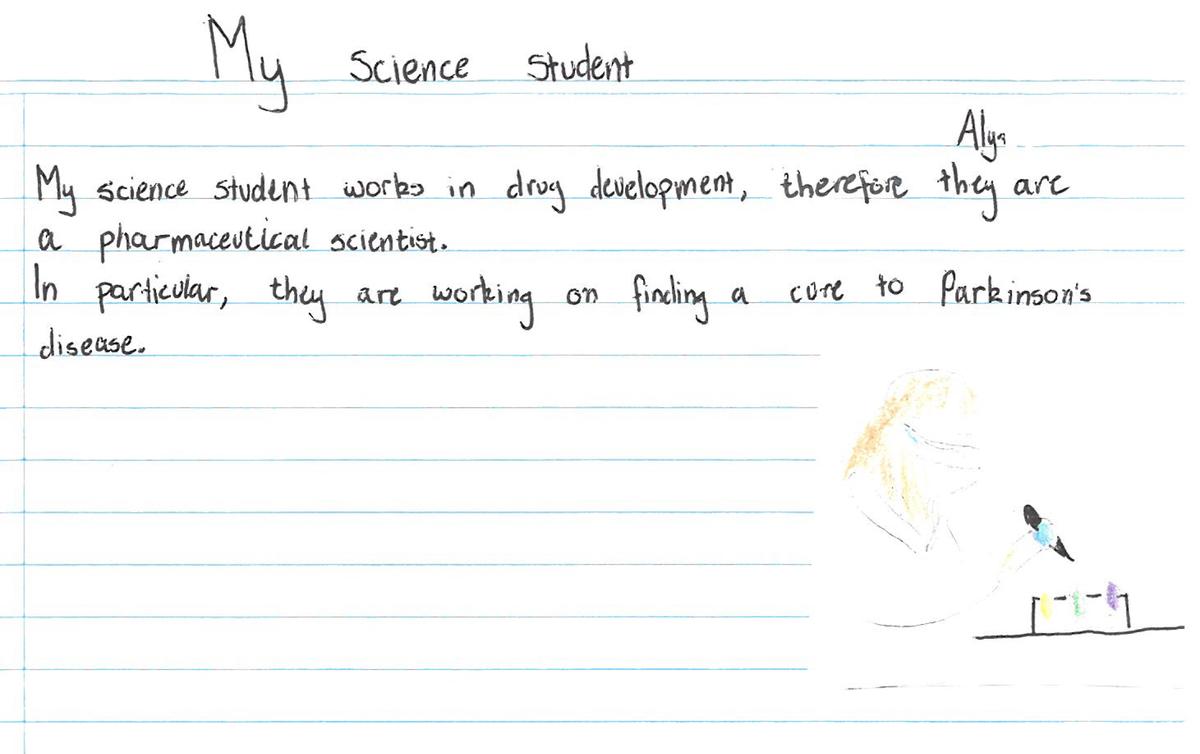 My Science Student
Alya
My science student works in drug development, therefore they are
a pharmaceutical scientist.
In particular, they are working on finding a cure to Parkinson's
disease.